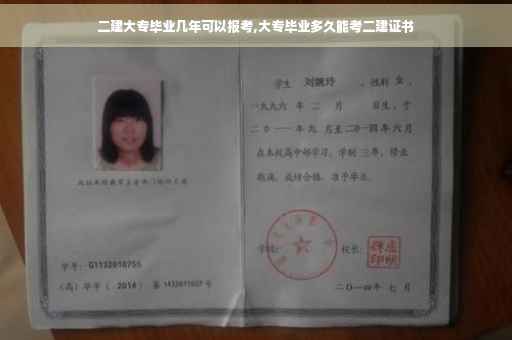 二建大专毕业几年可以报考,大专毕业多久能考二建证书
学生 刘婉玲 , 性别 女 ,
一九九六 年 二 月 日生, 于
二〇一一 年 九 月至 二〇一四 年 六 月
在本校高中部学习, 学制 三 年, 修业
期满, 成绩合格, 准予毕业。
学号: G1132010755
(高) 毕字 ( 2014 ) 第 1432011027 号
学校:
校长:
二〇一四年 七 月